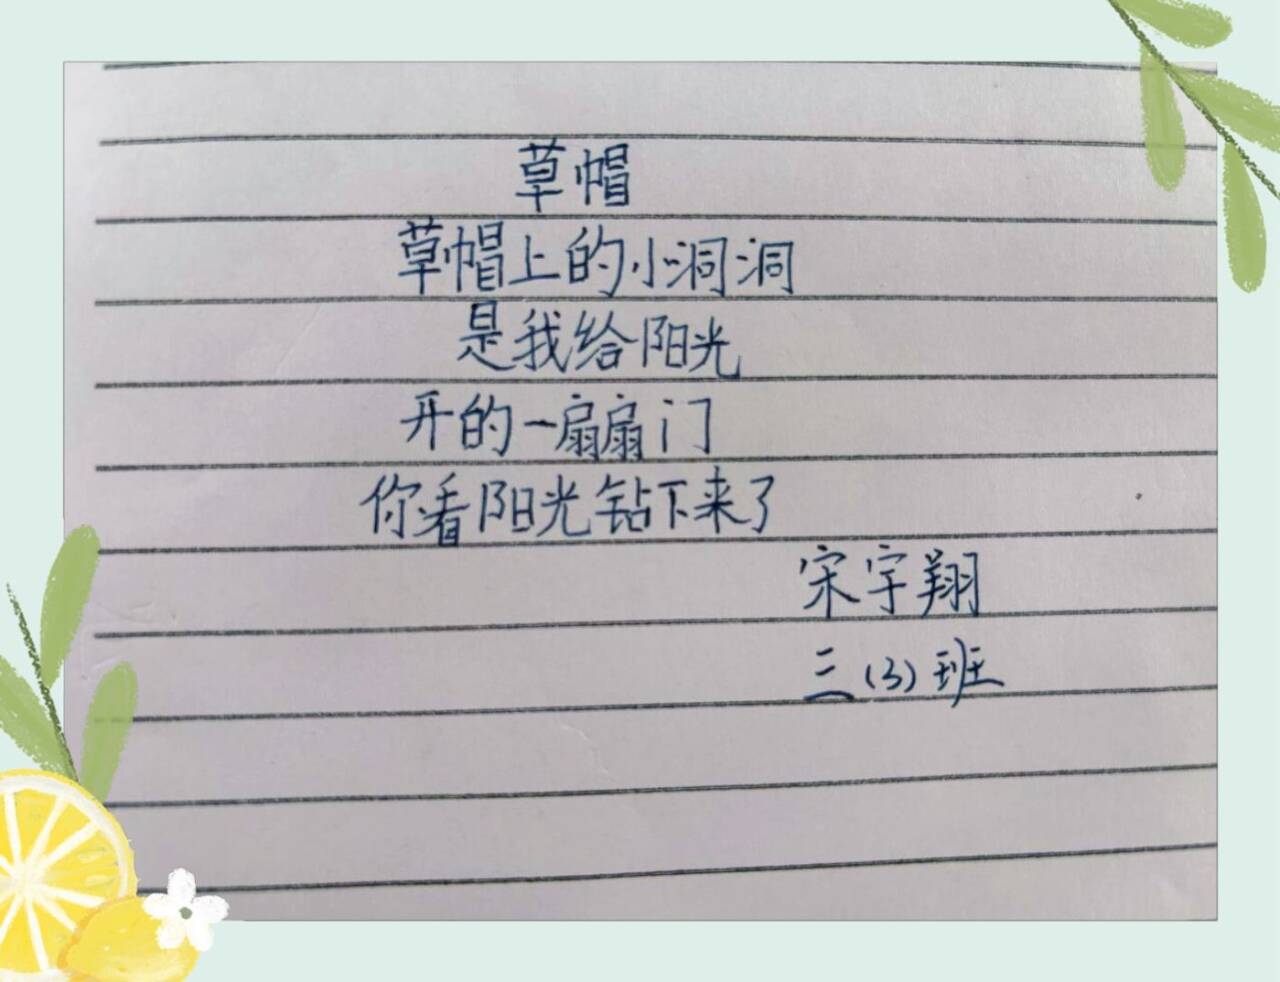 草帽
草帽上的小洞洞
是我给阳光
开的一扇扇门
你看阳光钻下来了
宋宇翔
三(3)班